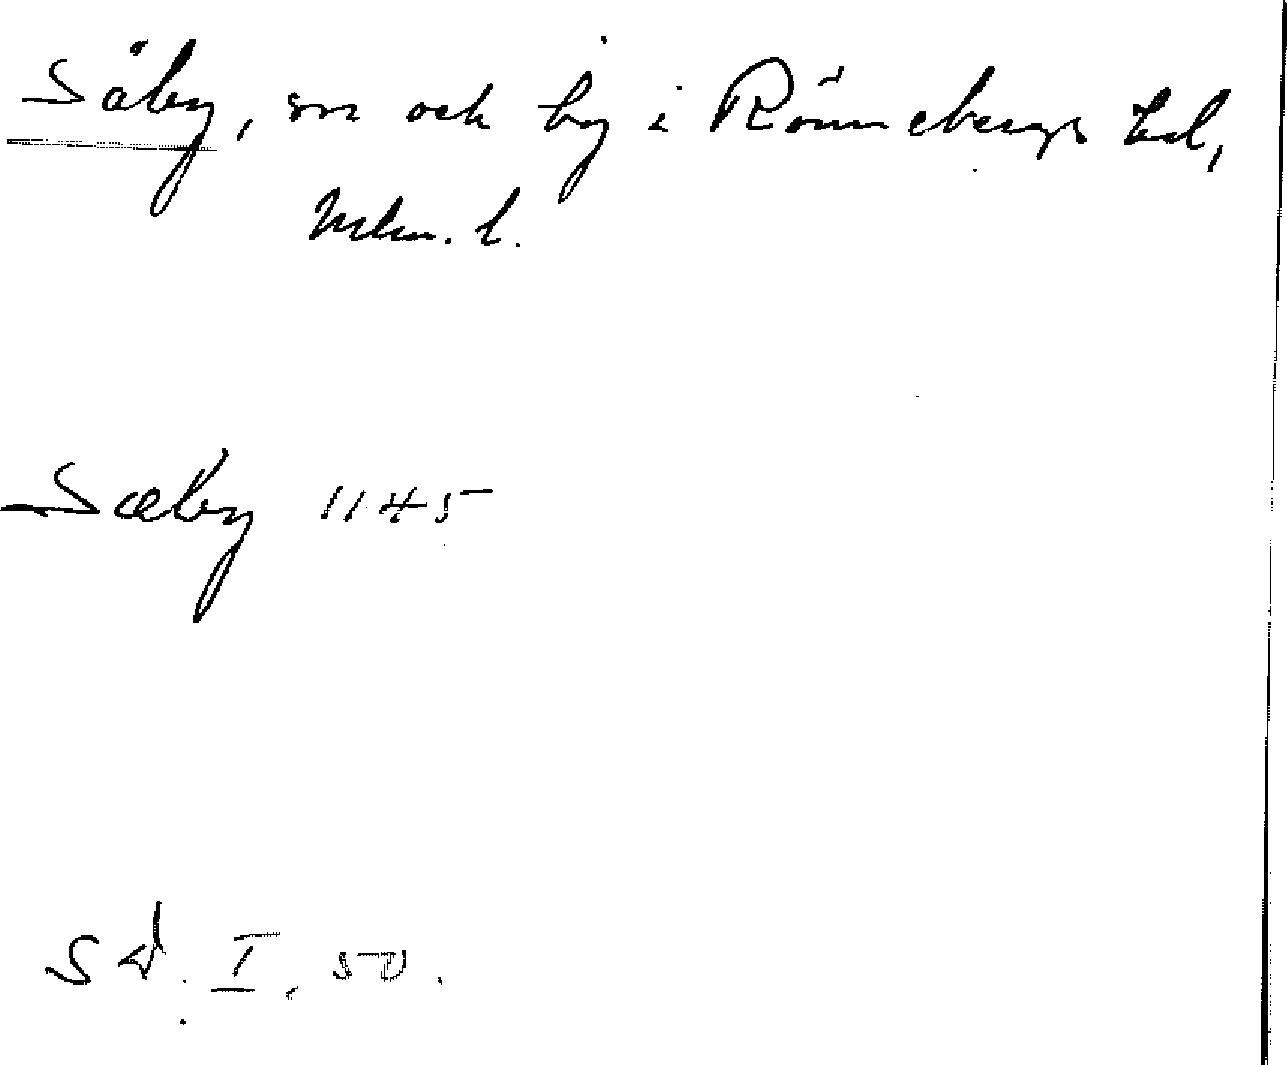 Säby, sn och by i Rönnebergs hd,
Mlm. l.
Sæby 1145
S d. I, 50.